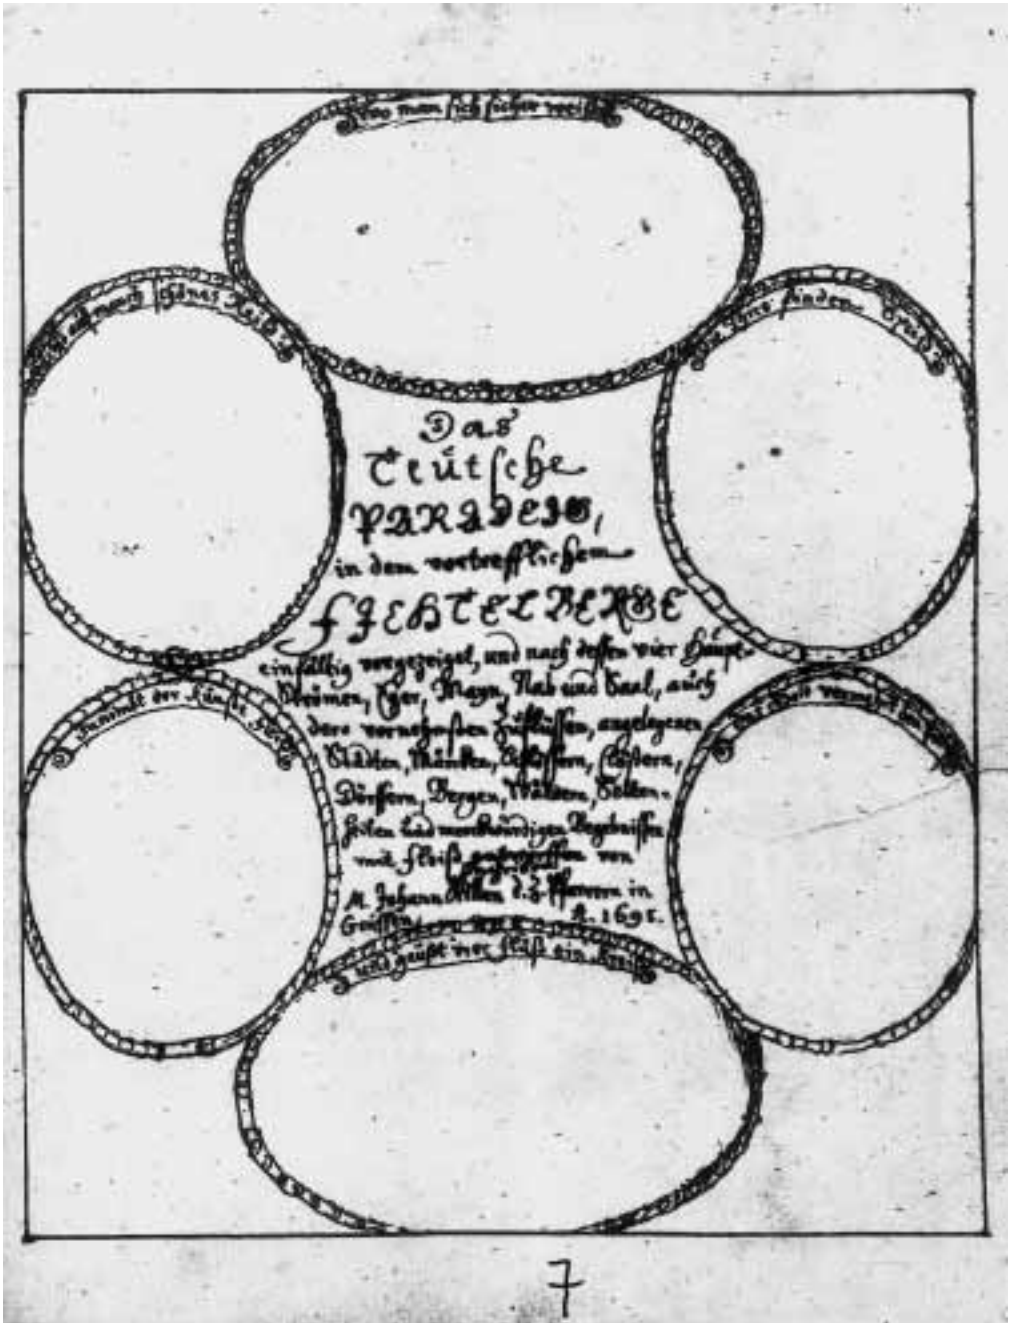 wo man sich sicher weiß
schönes
finden
Das
Teütsche
PARADEIS,
in dem vortrefflichem
FJEHTELBERGE
einfältig vorgezeiget, und nach dessen vier Haupt-
Strömen, Eger, Mayn, Nab und Saal, auch
dero vornehmsten Zuflüssen, angelegenen
Städten, Märkten, Schlössern, Clöstern,
Dörffern, Bergen, Wäldern, Selten-
heiten und merckwürdigen Begebnissen
mit Fleiß von
M. Johann Willen d.z. Pfarrern in
A. 1691.
der Künste
vermehret
und geüßt vier Flüß ein Kreiß
7